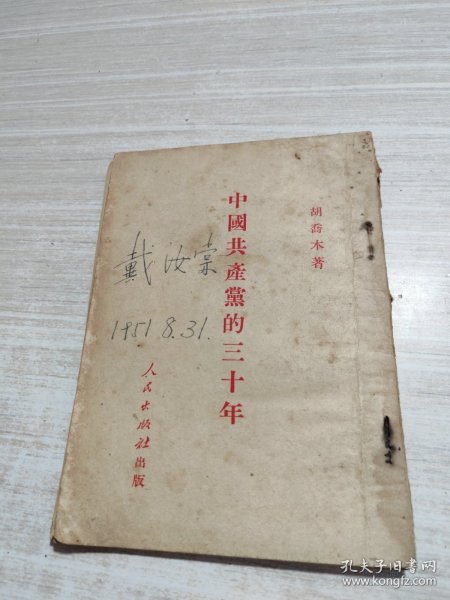 胡喬木著
中國共產黨的三十年
戴汝棠
1951 8.31.
人民出版社出版
孔夫子旧书网
www.kongfz.com